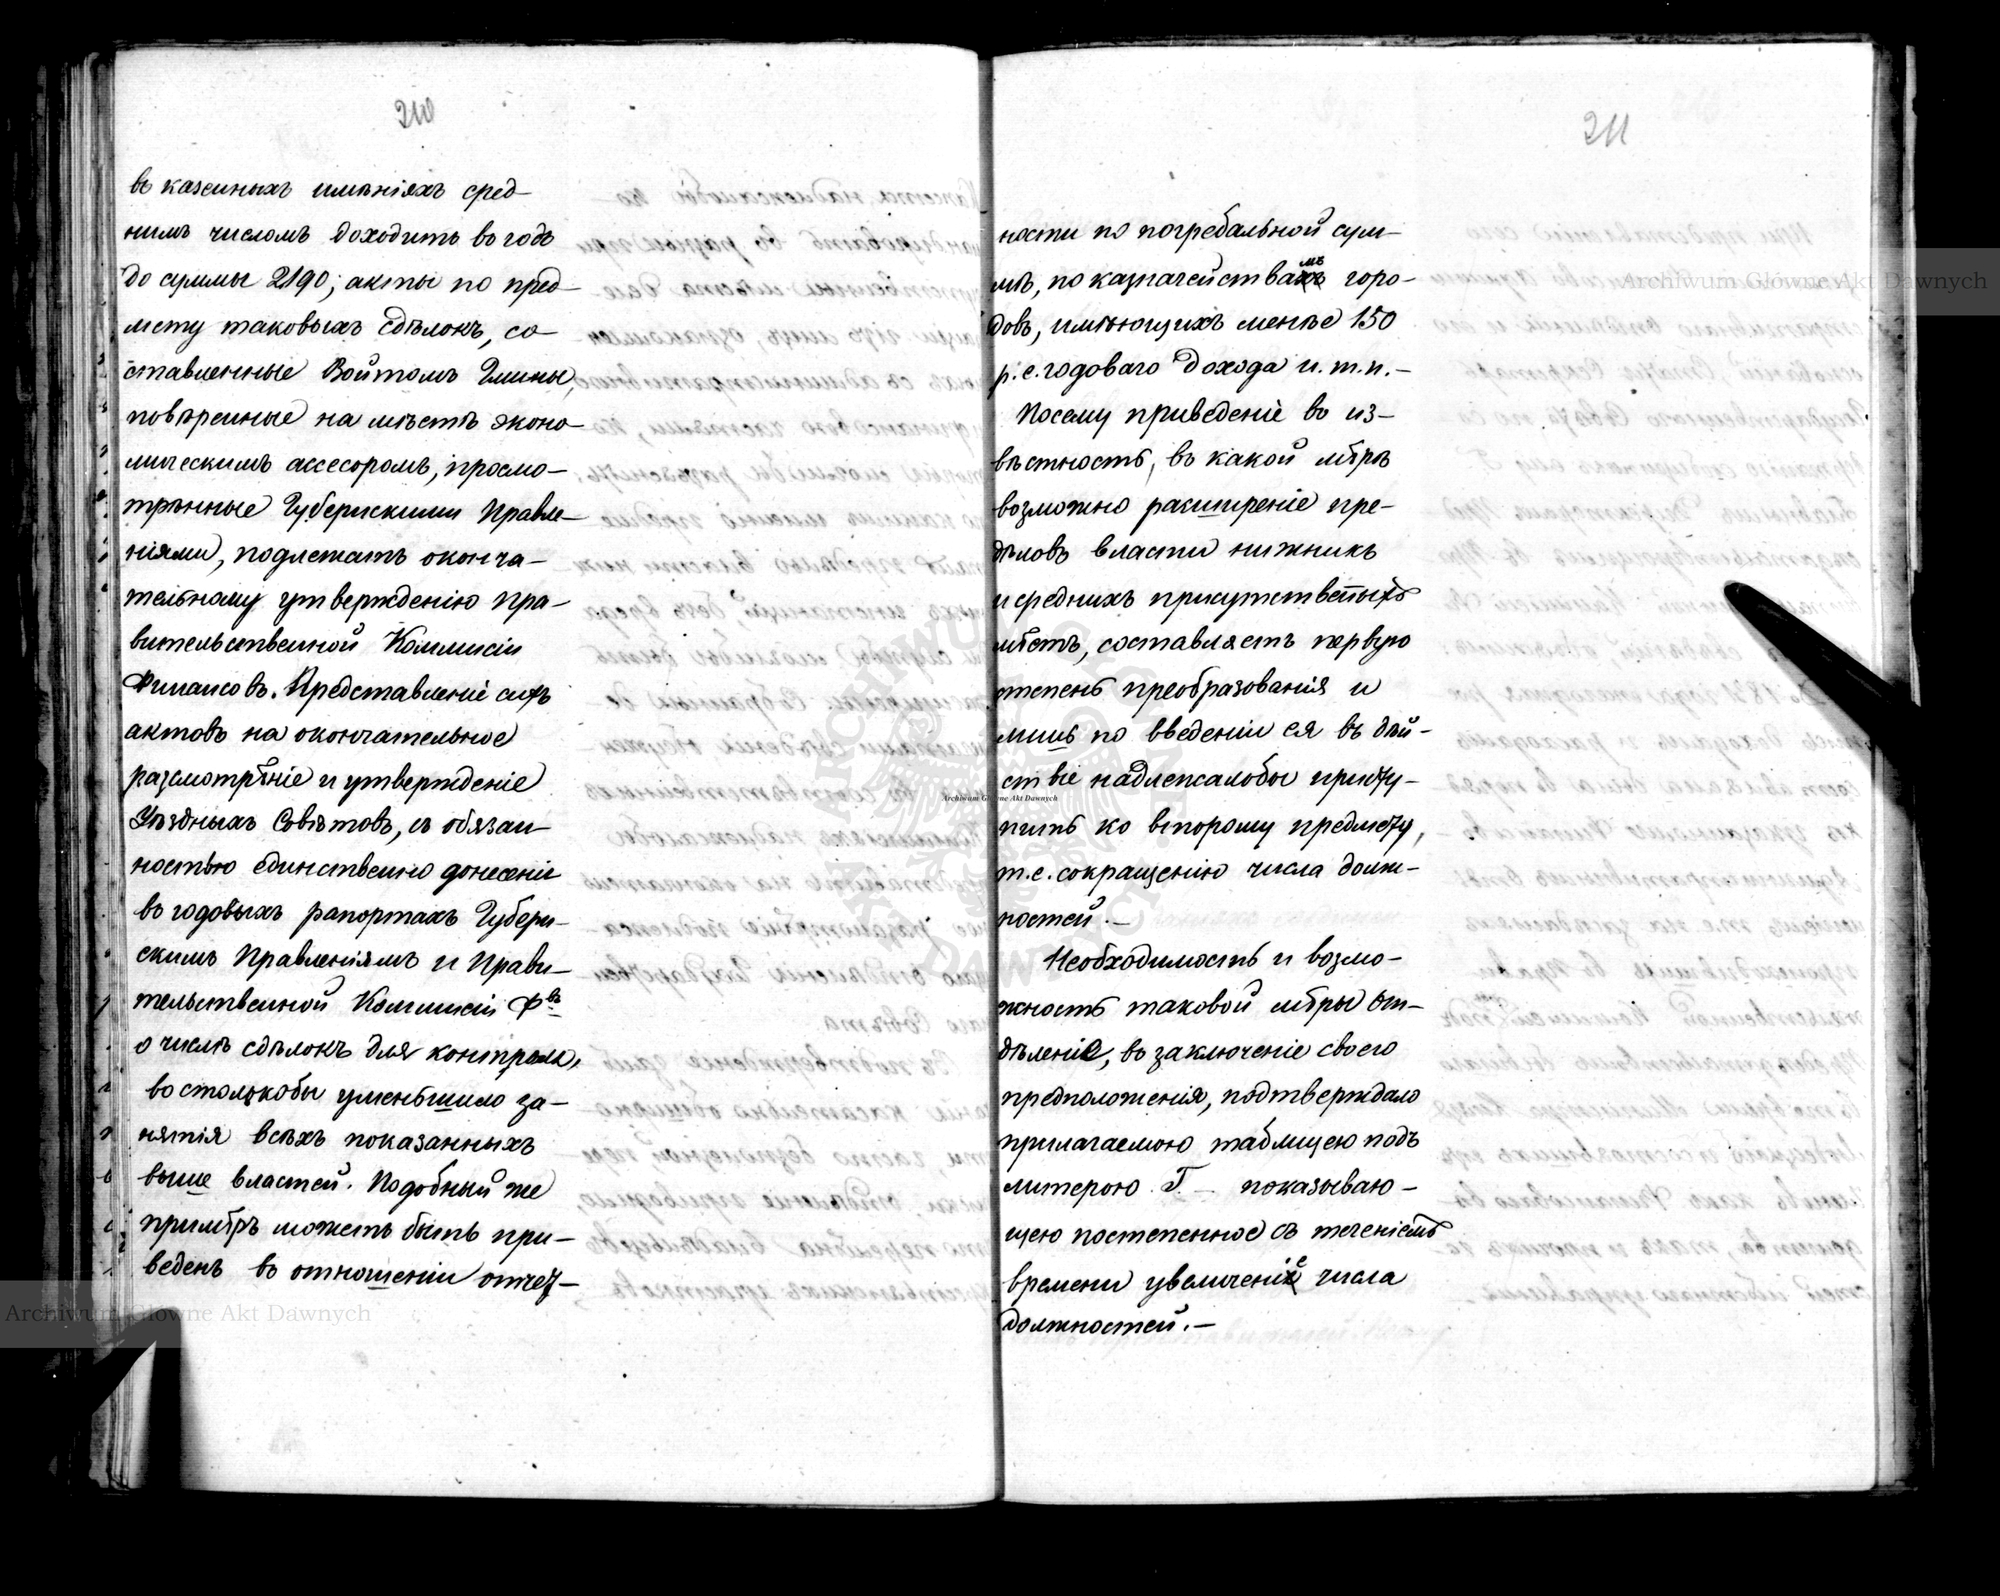 210
въ казенныхъ имѣніяхъ сред-
нимъ числомъ доходитъ въ годъ
до суммы 2190; акты по пред-
мету таковыхъ сдѣлокъ, со-
ставленные Войтомъ Гмины,
повѣренные на мѣстѣ эконо-
мическимъ ассесоромъ, просмо-
трѣнные Губернскими Правле-
ніями, подлежатъ оконча-
тельному утвержденію Пра-
вительственной Коммисіи
Финансовъ. Представленіе сихъ
актовъ на окончательное
разсмотрѣніе и утвержденіе
Уѣздныхъ Совѣтовъ, съ обязан-
ностью единственно донесеніи
въ годовыхъ рапортахъ Губерн-
скимъ Правленіямъ и Прави-
тельственной Коммисіи Ф въ
о числѣ сдѣлокъ для контроля,
во столько бы уменьшило за-
нятія всѣхъ показанныхъ
выше властей. Подобный же
примѣръ можетъ быть при-
веденъ въ отношеніи отчет-
211
ности по погребальной сум-
мѣ, по казначействамъ горо-
довъ, имѣющихъ менѣе 150
р. с. годоваго дохода и. т. п. -
Посему приведеніе въ из-
вѣстность, въ какой мѣрѣ
возможно расширеніе пре-
дѣловъ власти нижникъ
и среднихъ присутственныхъ
мѣстъ, составляетъ первую
степень преобразованія и
лишь по введеніи ея въ дѣй-
ствіе надлежало бы присту-
пить ко второму предмету,
т. е. сокращенію числа долж-
ностей. -
Необходимость и возмо-
жность таковой мѣры От-
дѣленіе, въ заключеніе своего
предположенія, подтверждало
прилагаемою таблицею подъ
литерою Г. - показываю-
щею постепенное съ теченіемъ
времени увеличеніе числа
должностей. -
Archiwum Główne Akt Dawnych
Archiwum Główne Akt Dawnych
Archiwum Główne Akt Dawnych